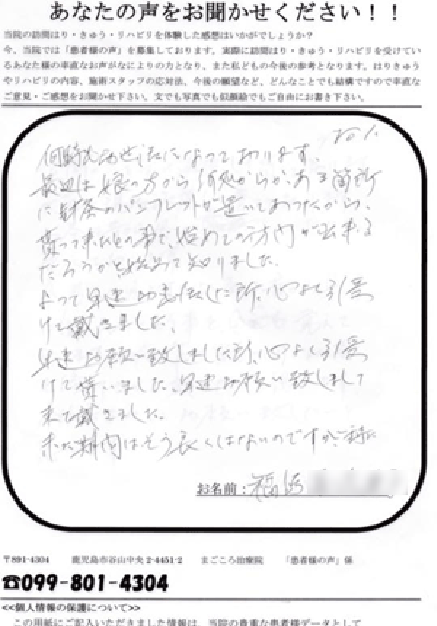 あなたの声をお聞かせください！！
当院の訪問はり・きゅう・リハビリを体験した感想はいかがでしょうか？
今、当院では「患者様の声」を募集しております。実際に訪問はり・きゅう・リハビリを受けてい
るあなた様の率直なお声がなによりの力となり、また私どもの今後の参考となります。はりきゅう
やリハビリの内容、施術スタッフの応対法、今後の願望など、どんなことでも結構ですので率直な
ご意見・ご感想をお聞かせ下さい。文でも写真でも似顔絵でもご自由にお書き下さい。
何時もお世話になっております。
最近は娘の方から何処からか、ある箇所
に針灸のパンフレットが置いてあったから、
貰って来たとの事で、始めて訪問が出来る
だろうかと始めて知りました。
よって早速お電話した所、心よく引受
けて戴きました。
早速お願い致しました所、心よく引受
けて貰いました。早速お願い致しまして
来て戴きました。
未だ期間はそう長くはないのですが
お名前：福
〒891-4304 鹿児島市谷山中央2-4451-2 まごころ治療院 「患者様の声」係
☎099-801-4304
<<個人情報の保護について>>
この用紙にご記入いただきました情報は、当院の貴重な患者様データとして